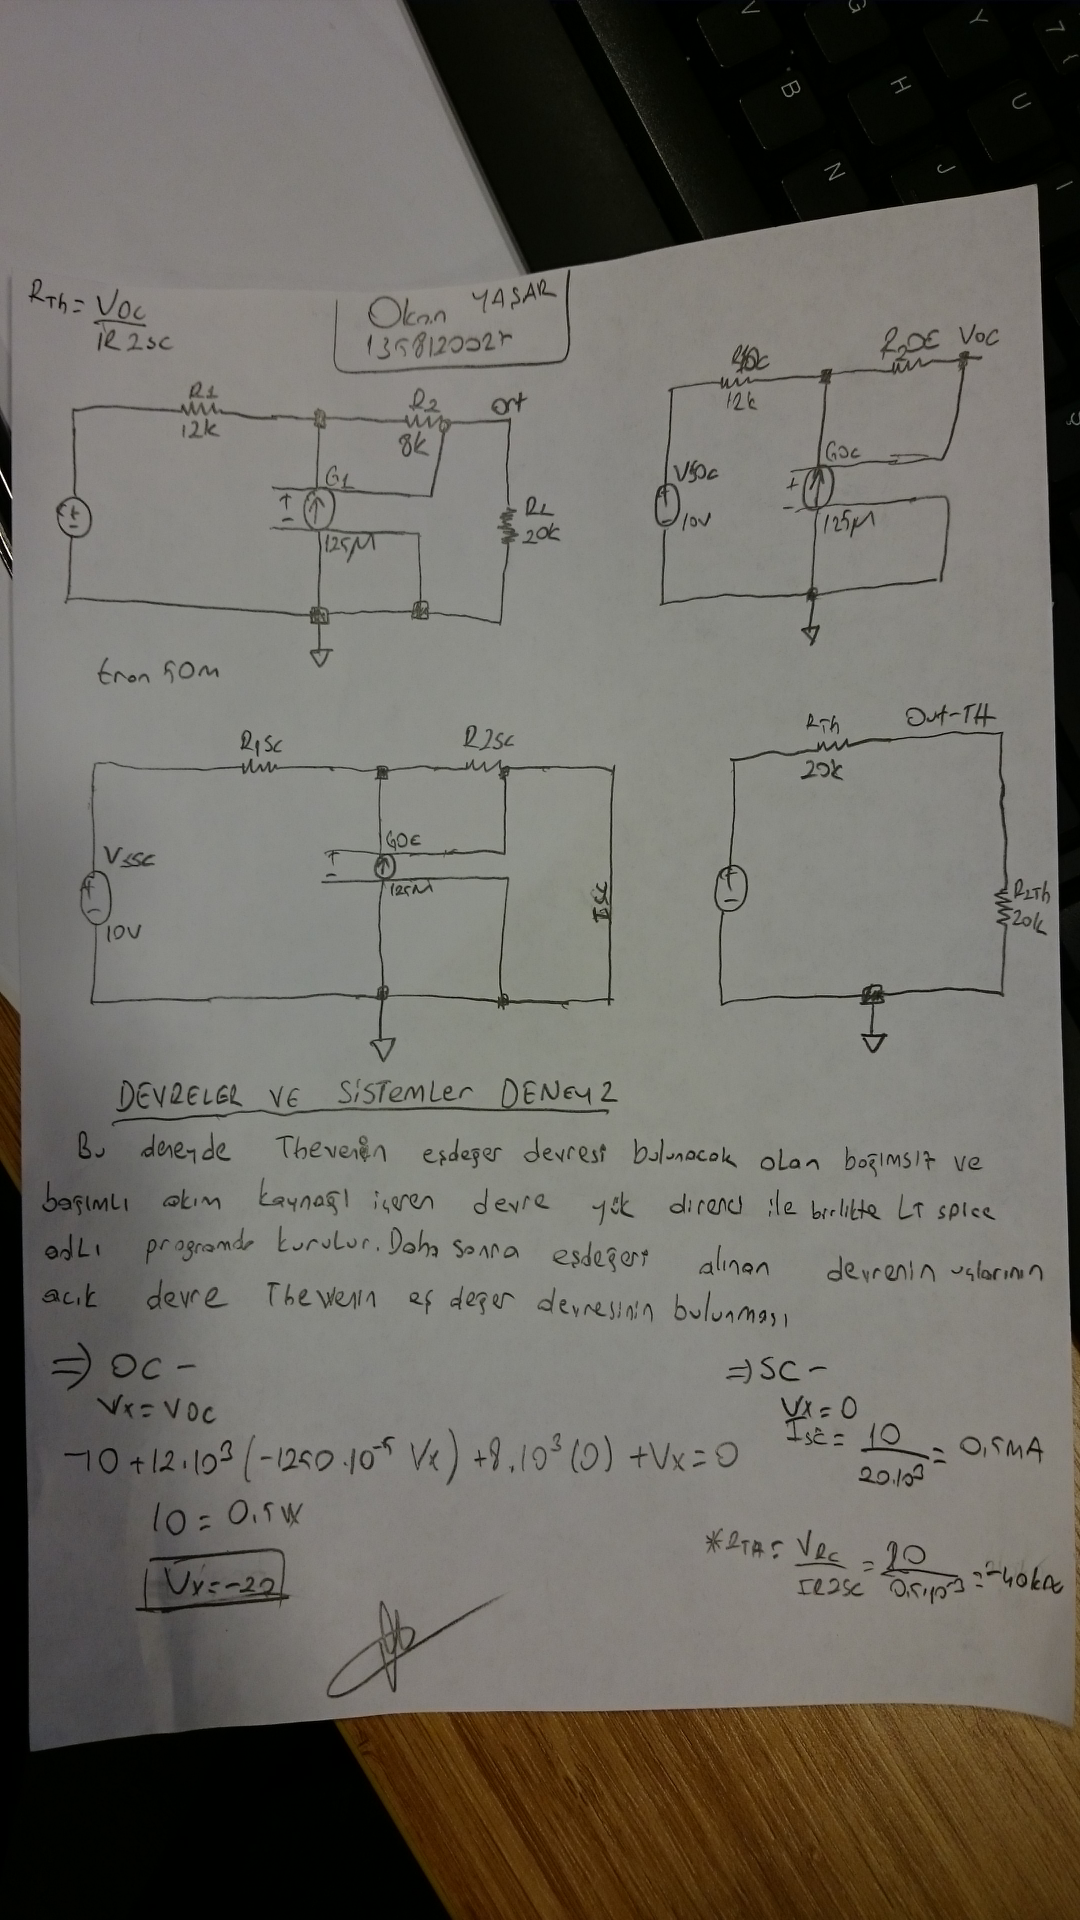 RTh = VOC / IR2SC
Okan YAŞAR
R1
12k
R2
8k
G1
125M
RL
20k
12k
R2OC VOC
VSOC
10V
GOC
125M
R1SC
R2SC
VSSC
10V
GOC
125M
ISC
RTh
20k
Out-TH
RLTh
20k
DEVRELER VE SiSTEMLer DENEY 2
Bu deneyde Thevenin eşdeğer devresi bulunacak olan bağımsız ve
bağımlı akım kaynağı içeren devre yük direnci ile birlikte LT spice
adlı programda kurulur. Daha sonra eşdeğeri alınan devrenin uçlarının
açık devre Thewenin eş değer devresinin bulunması
=> OC -
Vx = VOC
-10 + 12.10³ (-1250.10⁻⁵ Vx) + 8.10³ (0) + Vx = 0
10 = 0.5Vx
Vx = -20
=> SC -
Vx = 0
ISC = 10 / 20.10³ = 0,5MA